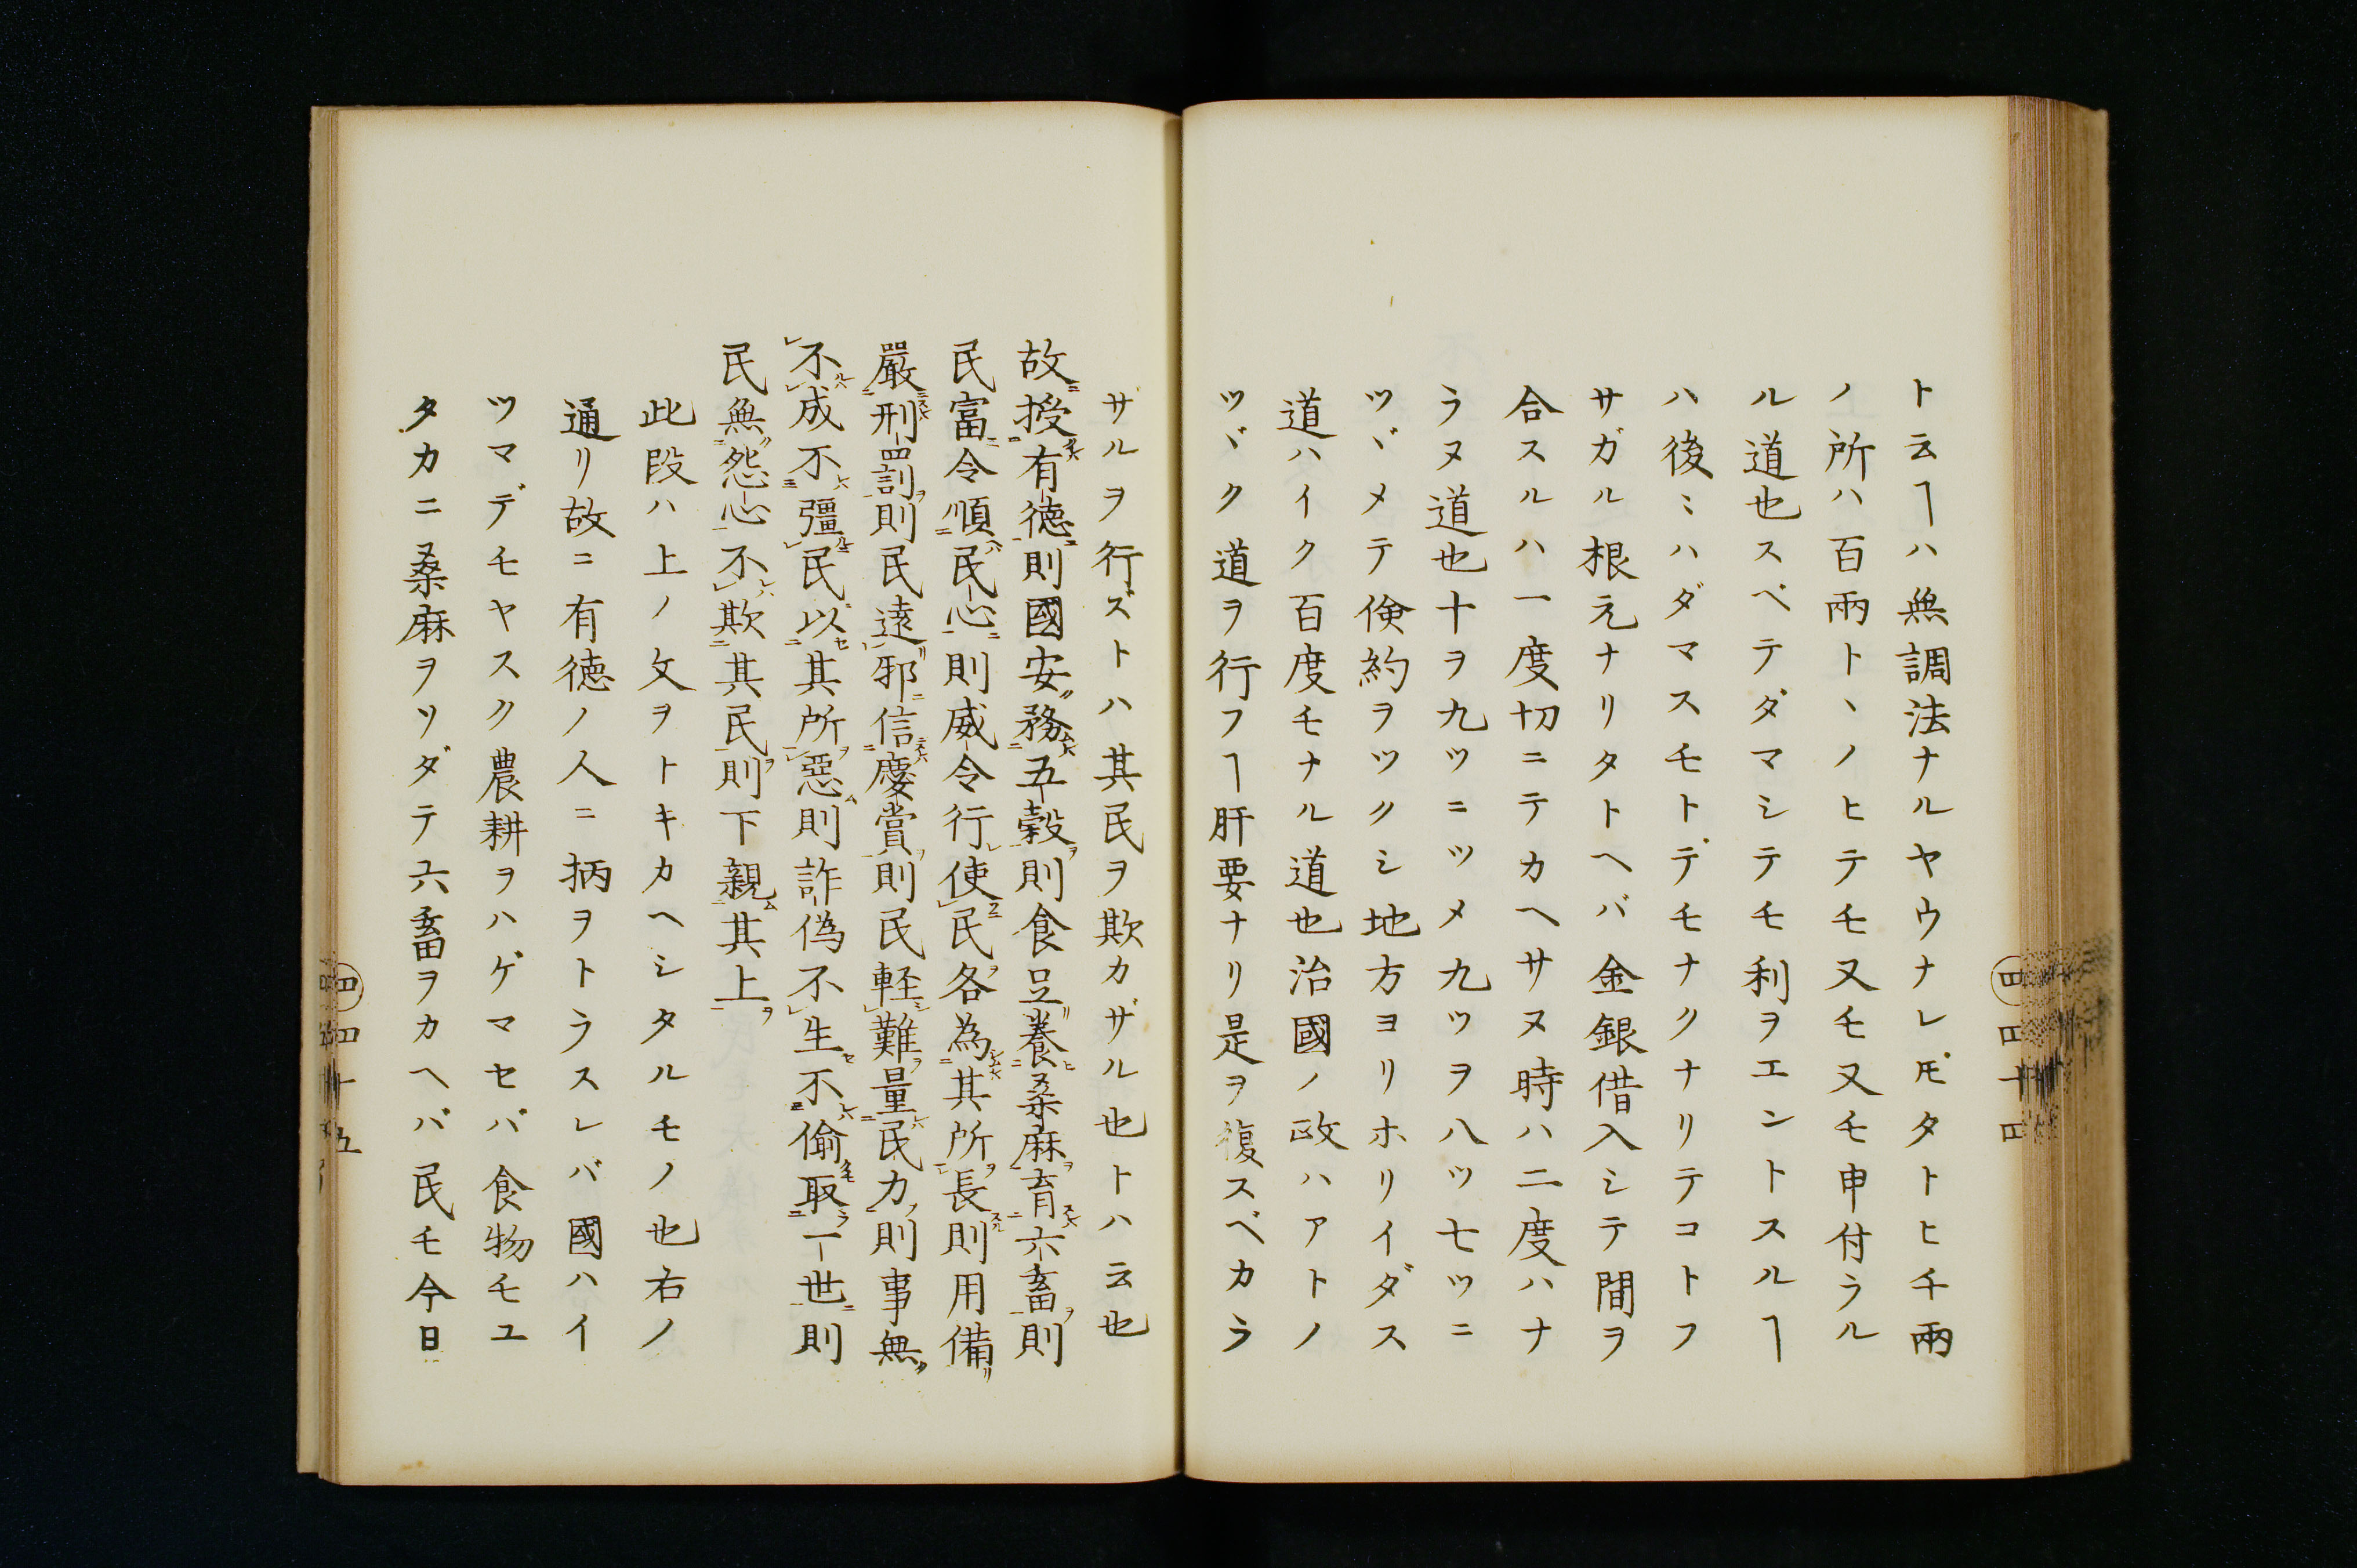 ト云ヿハ無調法ナルヤウナレ𪜈タトヒ千兩
ノ所ハ百兩ト、ノヒテモ又モ又モ申付ラル
ル道也スベテダマシテモ利ヲエントスルヿ
ハ後ミハダマスモトデモナクナリテコトフ
サガル根元ナリタトヘバ金銀借入シテ間ヲ
合スルハ一度切ニテカヘサヌ時ハ二度ハナ
ラヌ道也十ヲ九ツニツメ九ツヲ八ツ七ツニ
ツヾメテ倹約ヲツクシ地方ヨリホリイダス
道ハイク百度モナル道也治國ノ政ハアトノ
ツヾク道ヲ行フヿ肝要ナリ是ヲ復スベカラ
四 四十四
ザルヲ行ズトハ其民ヲ欺カザル也トハ云也
故授有徳則國安務五穀則食足養桑麻育六畜則
民富令順民心則威令行使民各為其所長則用備
嚴刑罰則民遠邪信慶賞則民軽難量民力則事無
不成不彊民以其所惡則詐偽不生不偷取一世則
民無怨心不欺其民則下親其上
此段ハ上ノ文ヲトキカヘシタルモノ也右ノ
通リ故ニ有徳ノ人ニ柄ヲトラスレバ國ハイ
ツマデモヤスク農耕ヲハゲマセバ食物モユ
タカニ桑麻ヲソダテ六畜ヲカヘバ民モ今日
四 四十五